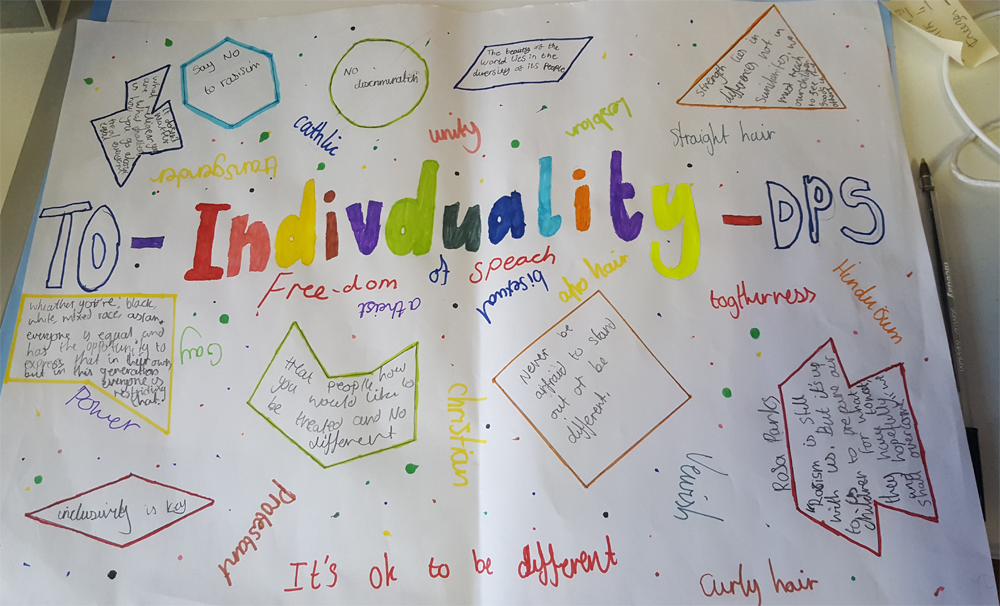 Say NO
to rasisim
NO
discrimination
The beauty of the
world lies in the
diversity of its people
Strength
lies in
differences not in
cathlic
unity
lesbian
straight hair
transgender
TO - Indivduality - DPS
Free-dom of speach
atheist
bisexual
afo hair
togthurness
Hinduisum
wheather you're black
white, mixed race, asian,
everyone is equal and
has the opportunity to
express that in
but in this generation
everyone is
restricting
that.
Gay
Power
treat people how
you would like to
be treated and No
different
christian
Never be
afraid to stand
out or be
different.
Rosa Parks
Racism is still
with us. But it's up
to us to prepare our
children for what
they have to
and hopefully, we
shall overcome
inclusivity is key
Protestant
It's ok to be different
curly hair